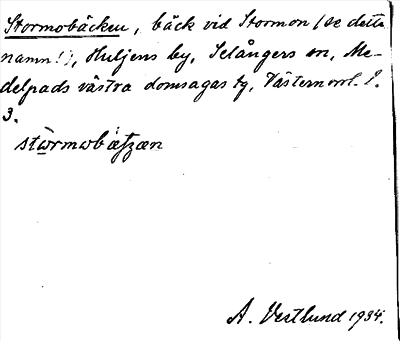 Stormobäcken, bäck vid Stormon (se detta
namn!), Huljens by, Selångers sn, Me-
delpads västra domsagas tg, Västernorrl. l.
3.
stωrmωbæʃzæn
A. Vestlund 1934.